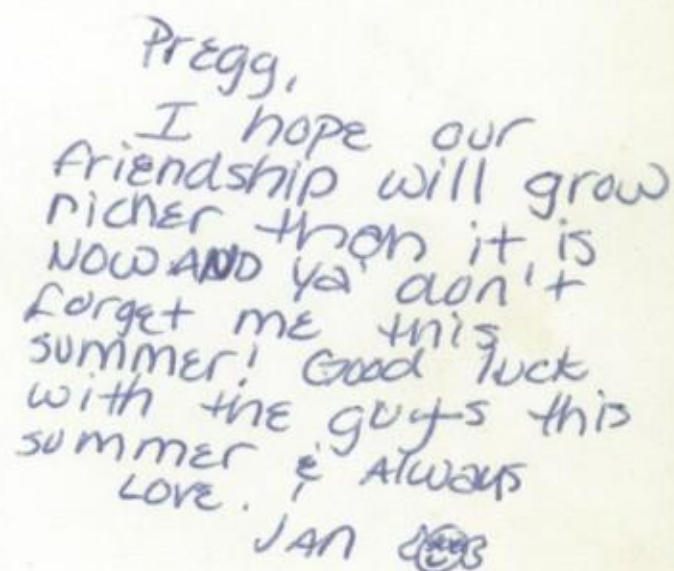 Pregg,
I hope our
friendship will grow
richer than it is
NOW AND ya' don't
forget me this
summer! Good luck
with the guys this
summer & Always
LOVE.
JAN